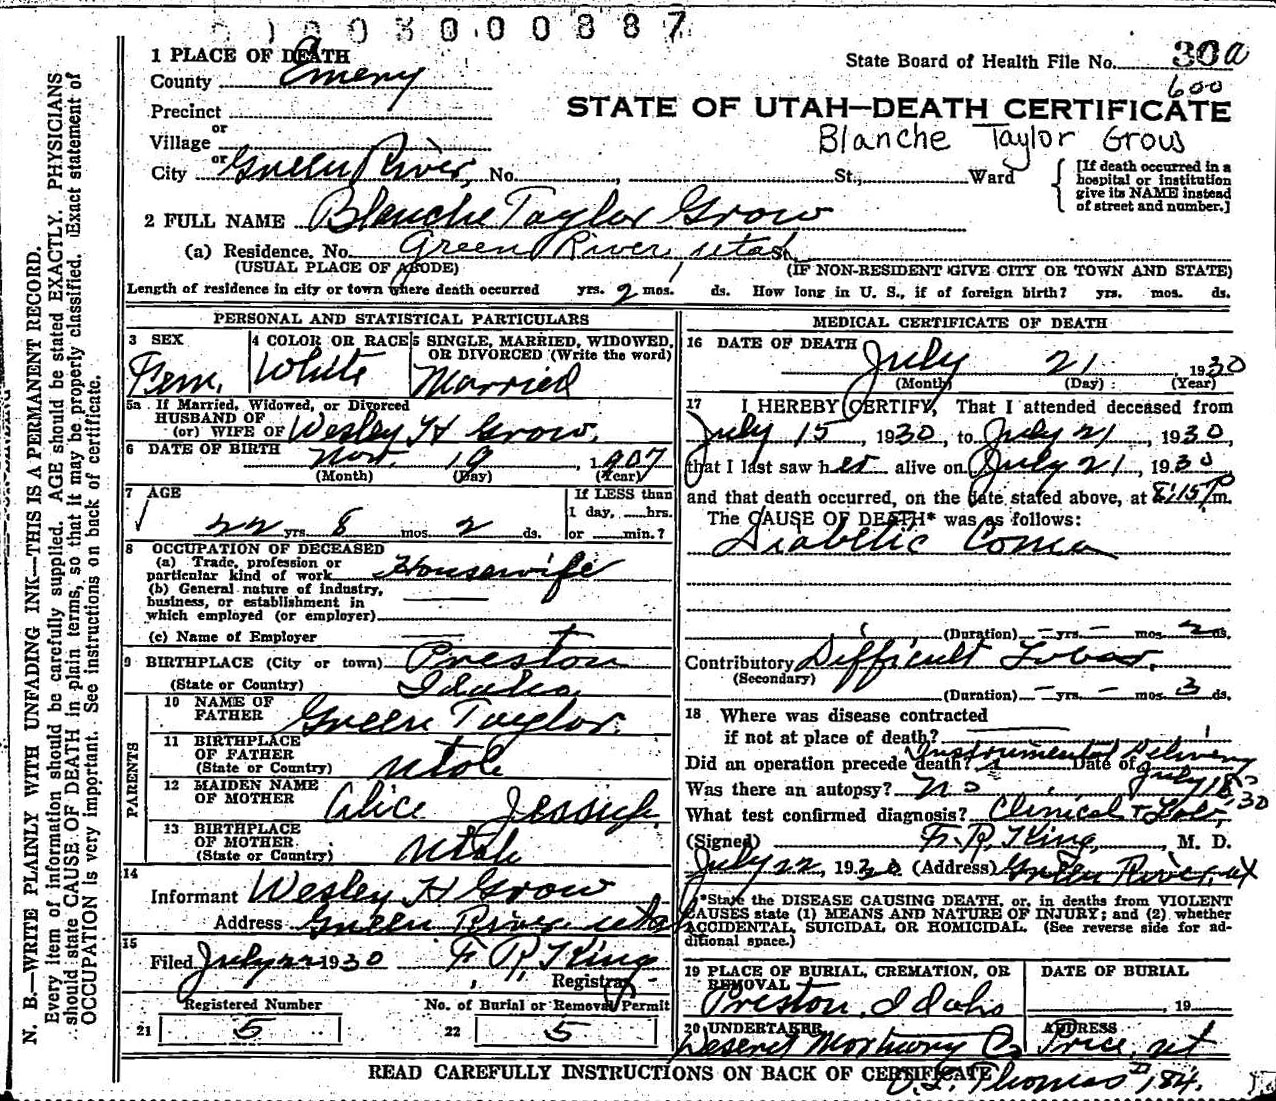 003000887
1 PLACE OF DEATH
State Board of Health File No. 30a
County Emery
600
Precinct
STATE OF UTAH—DEATH CERTIFICATE
or
Village
Blanche Taylor Grow
or
City Green River, No. , St., Ward
[If death occurred in a
hospital or institution
give its NAME instead
of street and number.]
2 FULL NAME Blanche Taylor Grow
(a) Residence. No. Green River, Utah St.
(USUAL PLACE OF ABODE) (IF NON-RESIDENT GIVE CITY OR TOWN AND STATE)
Length of residence in city or town where death occurred yrs. 2 mos. ds. How long in U. S., if of foreign birth? yrs. mos. ds.
PERSONAL AND STATISTICAL PARTICULARS
3 SEX
Fem.
4 COLOR OR RACE
White
5 SINGLE, MARRIED, WIDOWED,
OR DIVORCED (Write the word)
Married
5a If Married, Widowed, or Divorced
HUSBAND OF
(or) WIFE OF Wesley H Grow.
6 DATE OF BIRTH Nov. 19, 1907
(Month) (Day) (Year)
7 AGE
22 yrs. 8 mos. 2 ds.
If LESS than
1 day, hrs.
or min.?
8 OCCUPATION OF DECEASED
(a) Trade, profession or
particular kind of work Housewife
(b) General nature of industry,
business, or establishment in
which employed (or employer)
(c) Name of Employer
9 BIRTHPLACE (City or town) Preston
(State or Country) Idaho
PARENTS
10 NAME OF
FATHER Green Taylor.
11 BIRTHPLACE
OF FATHER
(State or Country) Utah
12 MAIDEN NAME
OF MOTHER Alice Jessup
13 BIRTHPLACE
OF MOTHER
(State or Country) Utah
14
Informant Wesley H Grow
Address Green River Utah
15
Filed July 22 1930 F. R. King
Registrar
Registered Number No. of Burial or Removal Permit
21 5 22 5
MEDICAL CERTIFICATE OF DEATH
16 DATE OF DEATH July 21 1930
(Month) (Day) (Year)
17 I HEREBY CERTIFY, That I attended deceased from
July 15, 1930, to July 21, 1930,
that I last saw her alive on July 21, 1930
and that death occurred, on the date stated above, at 8:15 P m.
The CAUSE OF DEATH* was as follows:
Diabetic Coma
(Duration) – yrs. – mos. 2 ds.
Contributory Difficult Labor.
(Secondary)
(Duration) – yrs. – mos. 3 ds.
18 Where was disease contracted
if not at place of death?
Did an operation precede death? Instrumental Delivery Date of July 18 30
Was there an autopsy? No
What test confirmed diagnosis? Clinical & Lab.
(Signed) F. R. King, M. D.
July 22, 1930 (Address) Green River, Ut
*State the DISEASE CAUSING DEATH, or, in deaths from VIOLENT
CAUSES state (1) MEANS AND NATURE OF INJURY; and (2) whether
ACCIDENTAL, SUICIDAL OR HOMICIDAL. (See reverse side for ad-
ditional space.)
19 PLACE OF BURIAL, CREMATION, OR
REMOVAL
Preston, Idaho
DATE OF BURIAL
, 19
20 UNDERTAKER
Deseret Mortuary Co
ADDRESS
Price, Ut
READ CAREFULLY INSTRUCTIONS ON BACK OF CERTIFICATE
Thomas 184.
N. B.—WRITE PLAINLY WITH UNFADING INK—THIS IS A PERMANENT RECORD.
Every item of information should be carefully supplied. AGE should be stated EXACTLY. PHYSICIANS
should state CAUSE OF DEATH in plain terms, so that it may be properly classified. Exact statement of
OCCUPATION is very important. See instructions on back of certificate.